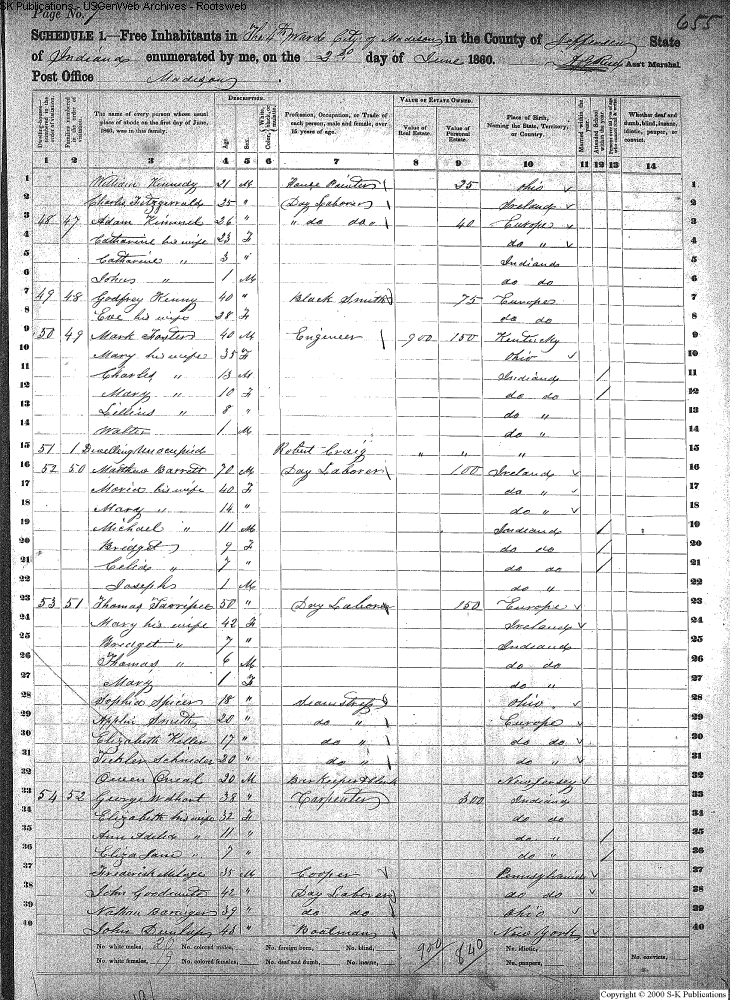 SK Publications - USGenWeb Archives - Rootsweb
Page No. 7
655
SCHEDULE 1.—Free Inhabitants in The 4th Ward City of Madison in the County of Jefferson State
of Indiana enumerated by me, on the 2nd day of June 1860. Ass't Marshal
Post Office Madison.
Dwelling-houses— numbered in the order of visitation.
Families numbered in the order of visitation.
The name of every person whose usual place of abode on the first day of June, 1860, was in this family.
DESCRIPTION.
Age
Sex
Color, White, black, or mulatto.
Profession, Occupation, or Trade of each person, male and female, over 15 years of age.
VALUE OF ESTATE OWNED.
Value of Real Estate.
Value of Personal Estate.
Place of Birth, Naming the State, Territory, or Country.
Married within the year.
Attended School within the year.
Whether deaf and dumb, blind, insane, idiotic, pauper, or convict.
1 2 3 4 5 6 7 8 9 10 11 12 13 14
1 William Kennedy 21 M House Painter 25 Ohio ✓ 1
2 Charles Fitzgerrald 25 " Day Laborer Ireland ✓ 2
3 48 47 Adam Kimmel 26 " " do do " 40 Europe ✓ 3
4 Catharine his wife 23 F do " ✓ 4
5 Catharine " 3 " Indiana 5
6 John " 1 M do do 6
7 49 48 Godfrey Kenny 40 " Black Smith 75 Europe 7
8 Eve his wife 28 F do do 8
9 50 49 Mark Foster 40 M Engineer 900 150 Kentucky 9
10 Mary his wife 35 F Ohio ✓ 10
11 Charles " 13 M Indiana / 11
12 Mary " 10 F do do / 12
13 Lillius " 8 " do " 13
14 Walter 1 M do " 14
15 51 1 Dwelling Unocupied Robert Craig " " " 15
16 52 50 Matthew Barrett 70 M Day Laborer 100 Ireland ✓ 16
17 Maria his wife 40 F do " ✓ 17
18 Mary " 14 " do " ✓ 18
19 Michael " 11 M Indiana / 19
20 Bridget 9 F do do / 20
21 Celia 7 " do do / 21
22 Joseph 1 M do " 22
23 53 51 Thomas 50 " Day Laborer 150 Europe ✓ 23
24 Mary his wife 42 F Ireland ✓ 24
25 Bridget " 7 " Indiana 25
26 Thomas " 6 M do do 26
27 Mary 1 F do " 27
28 Sophia Spicer 18 " Seamstress Ohio ✓ 28
29 Smith 20 " do " Europe ✓ 29
30 Elizabeth Keller 17 " do " do do ✓ 30
31 Schnieder 20 " do " do " ✓ 31
32 Oneal 30 M Bar Keeper & Clerk New Jersey ✓ 32
33 54 52 George 38 " Carpenter 300 Indiana 33
34 Elizabeth his wife 32 F do do 34
35 Ann Adelia " 11 " do " / 35
36 Eliza Jane " 7 " do " / 36
37 Frederick 35 M Cooper Pennsylvania ✓ 37
38 John 42 " Day Laborer do do ✓ 38
39 Nathan 39 " do do Ohio ✓ 39
40 John Dunlap 43 " Boatman New York ✓ 40
No. white males, No. colored males, No. foreign born, No. blind, 900 840 No. idiotic,
No. white females, 19 No. colored females, No. deaf and dumb, No. insane, No. paupers, No. convicts,
Copyright © 2000 S-K Publications